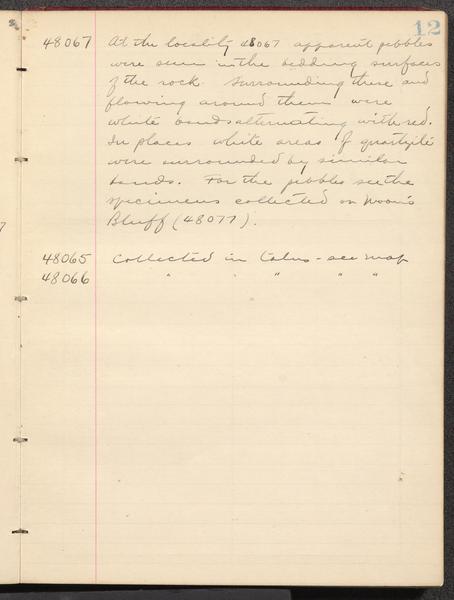 12
48067 At the locality 48067 apparent pebbles
were seen in the bedding surfaces
of the rock. Surrounding these and
flowing around them were
white bands alternating with red.
In places white areas of quartzite
were surrounded by similar
bands. For the pebbles see the
specimens collected on Moon's
Bluff (48077).
48065 Collected in Talus - see map
48066 " " " " "
7